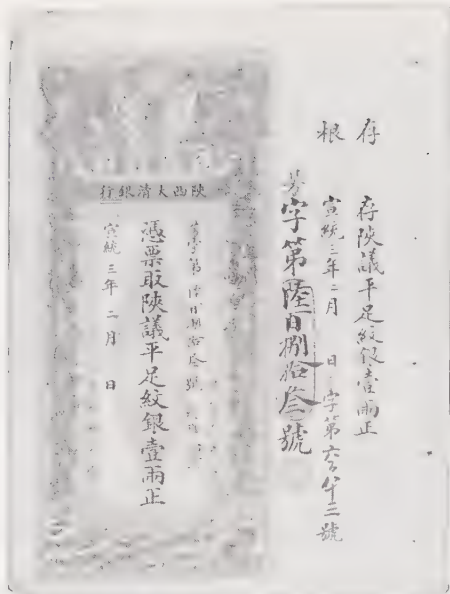 存根
存陝議平足紋銀壹兩正
宣統三年二月　日　字第六百八十三號
字第陸百捌拾叁號
陝西大清銀行
字第陸百捌拾叁號
憑票取陝議平足紋銀壹兩正
宣統三年二月　日